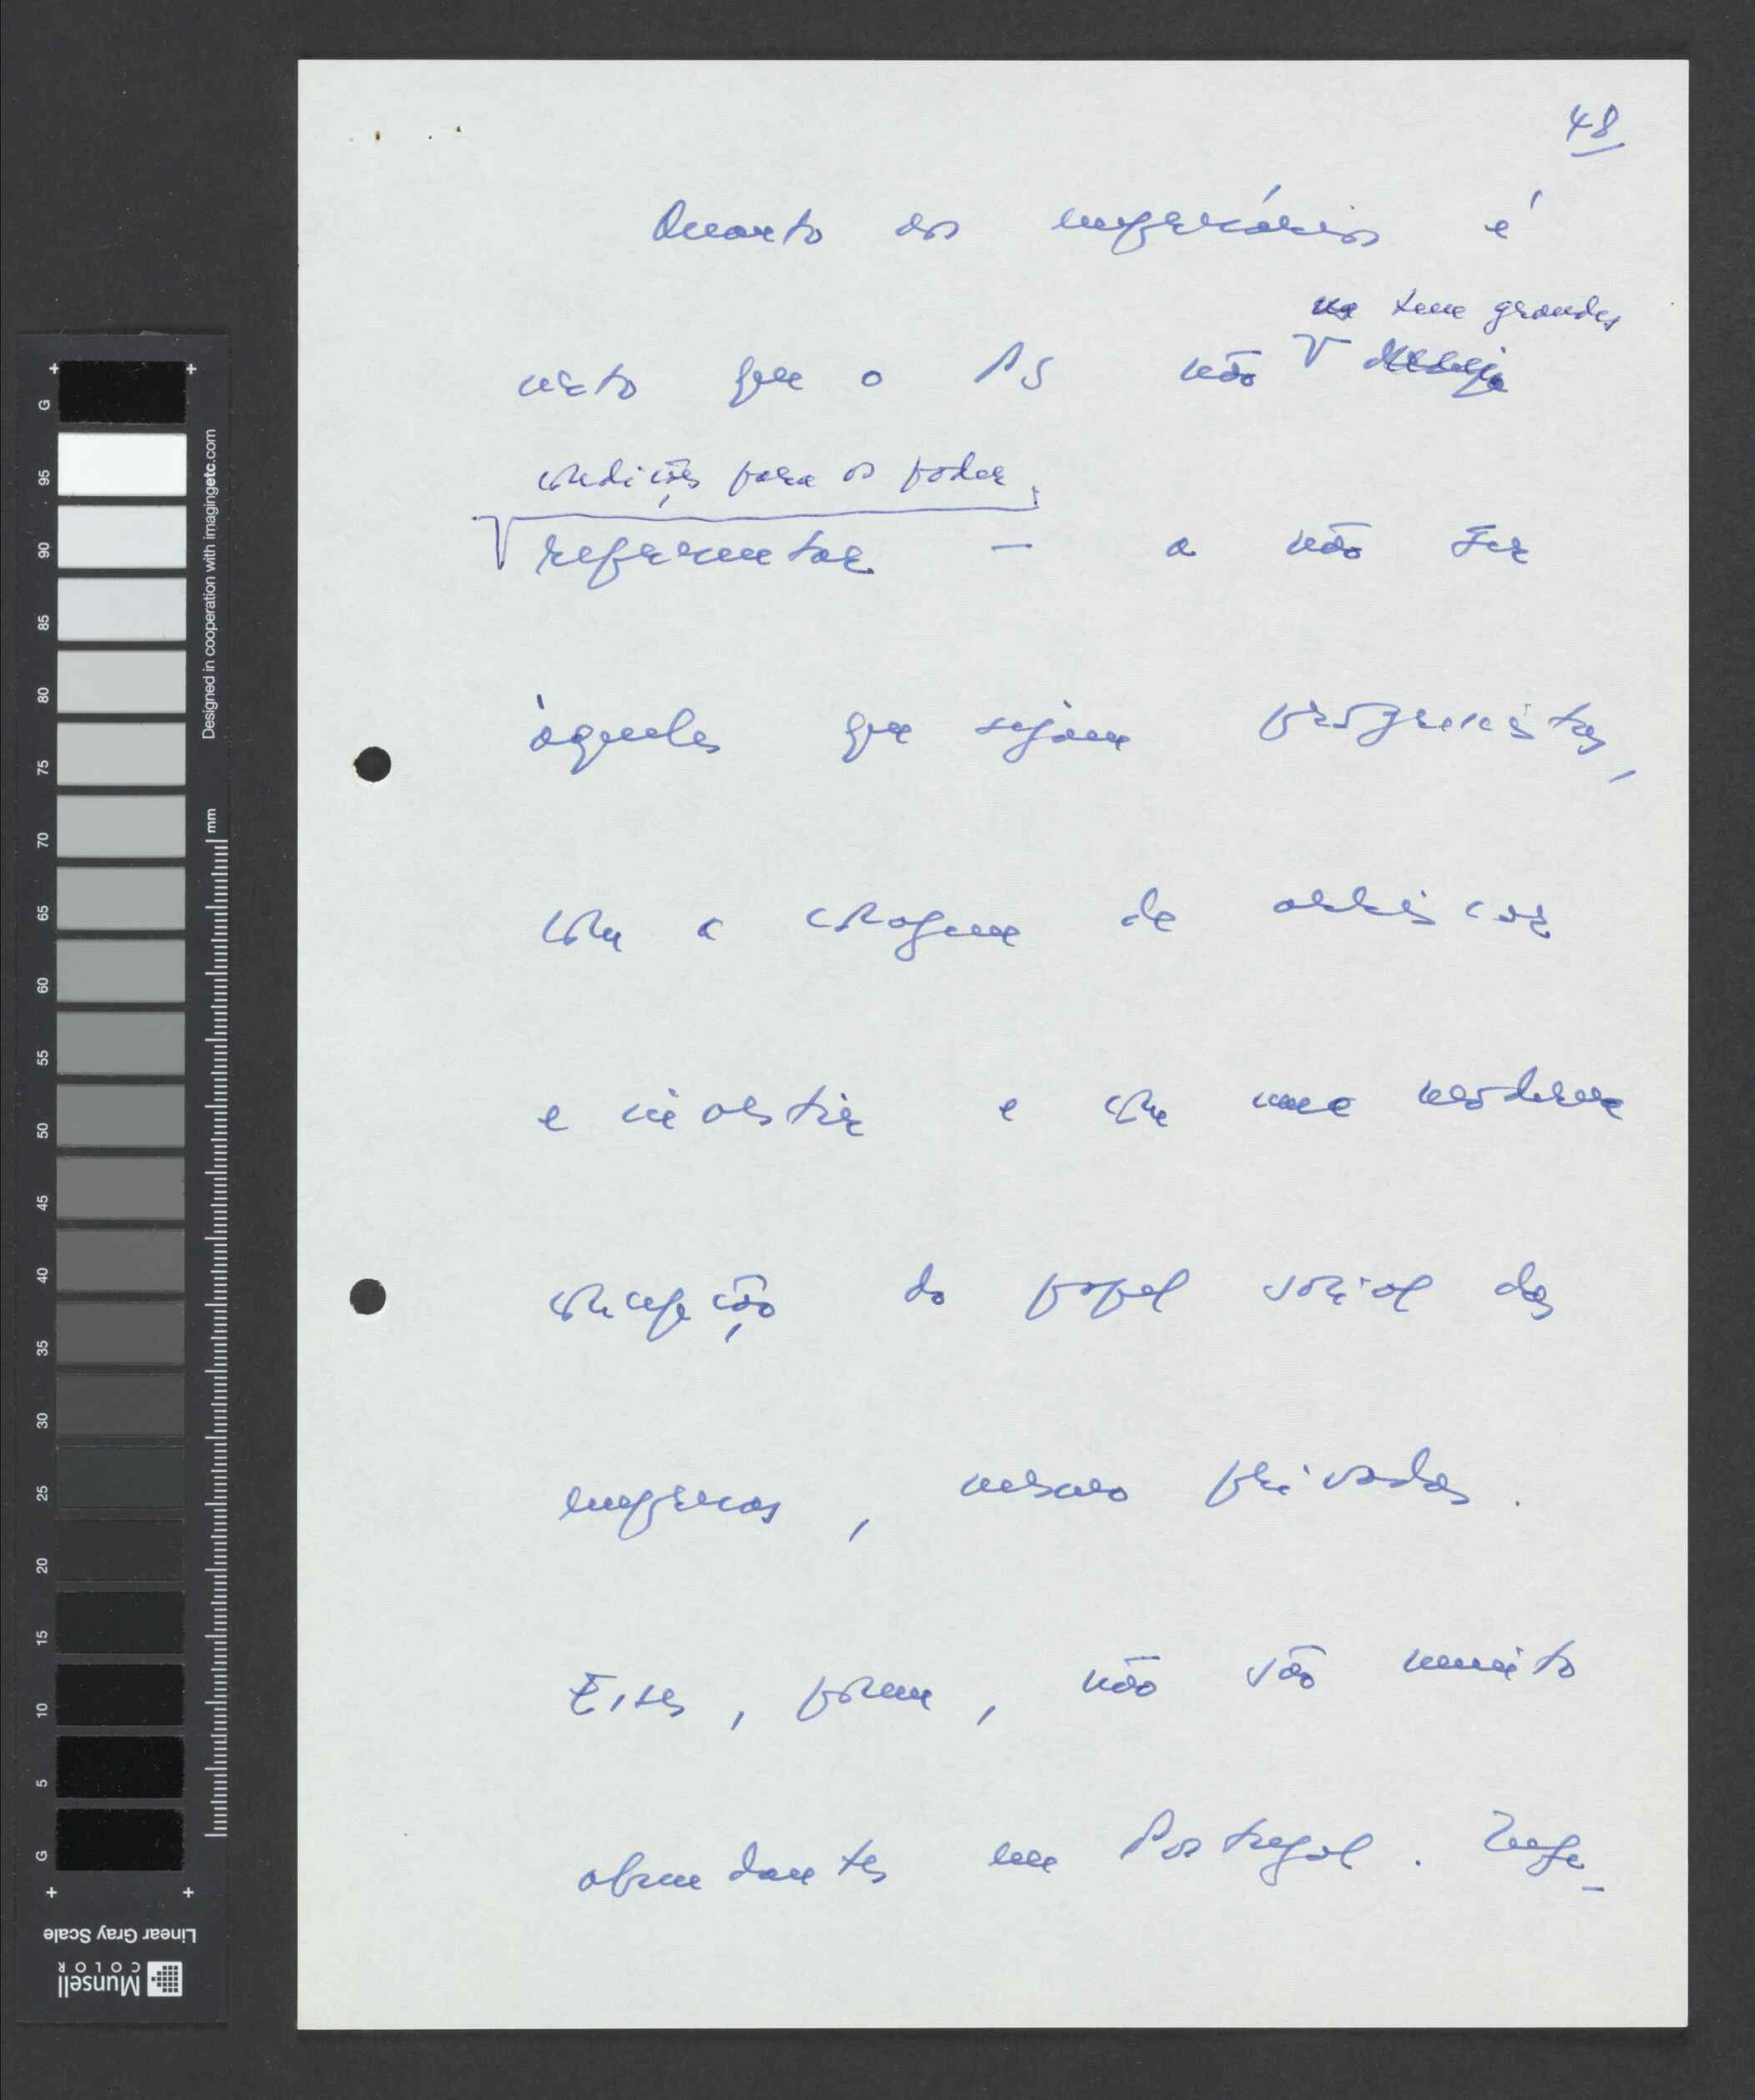 48
Quanto aos empresários é
tem grandes
certo que o PS não deseja
condições para os poder
representar — a não ser
àqueles que sejam progressistas,
com a coragem de arriscar
e investir e com uma moderna
concepção do papel social das
empresas, mesmo privadas.
Esses, porém, não são muito
abundantes em Portugal. Infe-
G
95
90
85
80
75
70
65
60
55
50
45
40
35
30
25
20
15
10
5
G
mm
Designed in cooperation with imagingetc.com
Linear Gray Scale
Munsell
COLOR